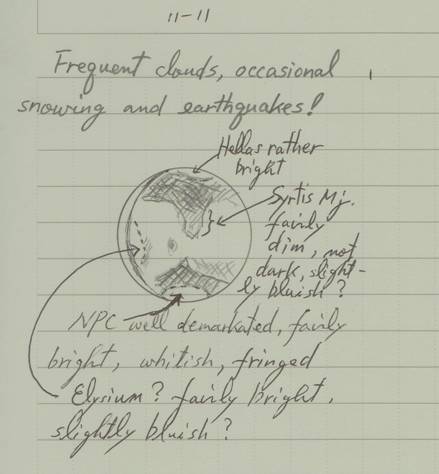 11-11
Frequent clouds, occasional
snowing and earthquakes!
Hellas rather
bright
Syrtis Mj.
fairly
dim, not
dark, slight-
ly bluish?
NPC well demarkated, fairly
bright, whitish, fringed
Elysium? fairly bright,
slightly bluish?